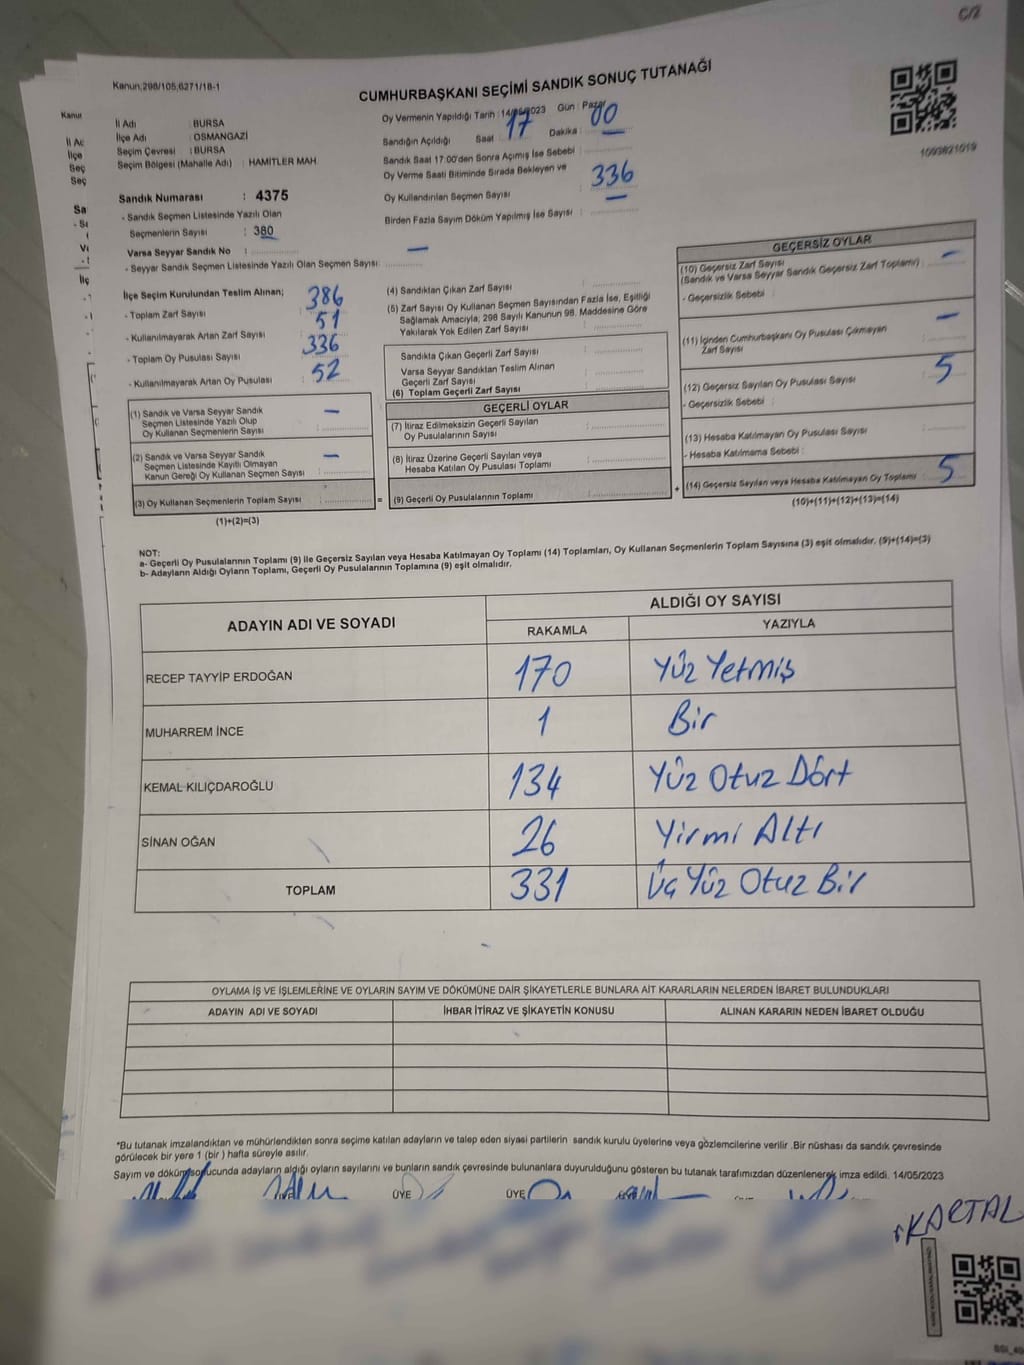 C/2
Kanun,298/105,6271/18-1
CUMHURBAŞKANI SEÇİMİ SANDIK SONUÇ TUTANAĞI
İl Adı : BURSA
İlçe Adı : OSMANGAZİ
Seçim Çevresi : BURSA
Seçim Bölgesi (Mahalle Adı) : HAMİTLER MAH.
Oy Vermenin Yapıldığı Tarih : 14/05/2023 Gün : Pazar
Sandığın Açıldığı Saat 17 Dakika 00
Sandık Saat 17:00'den Sonra Açımış İse Sebebi : —
Oy Verme Saati Bitiminde Sırada Bekleyen ve
Oy Kullandırılan Seçmen Sayısı : 336
Birden Fazla Sayım Döküm Yapılmış İse Sayısı : —
1093821019
Sandık Numarası : 4375
- Sandık Seçmen Listesinde Yazılı Olan
Seçmenlerin Sayısı : 380
Varsa Seyyar Sandık No : —
- Seyyar Sandık Seçmen Listesinde Yazılı Olan Seçmen Sayısı:
İlçe Seçim Kurulundan Teslim Alınan;
- Toplam Zarf Sayısı 386
- Kullanılmayarak Artan Zarf Sayısı 51
- Toplam Oy Pusulası Sayısı 336
- Kullanılmayarak Artan Oy Pusulası 52
(1) Sandık ve Varsa Seyyar Sandık —
Seçmen Listesinde Yazılı Olup
Oy Kullanan Seçmenlerin Sayısı :
(2) Sandık ve Varsa Seyyar Sandık —
Seçmen Listesinde Kayıtlı Olmayan
Kanun Gereği Oy Kullanan Seçmen Sayısı :
(3) Oy Kullanan Seçmenlerin Toplam Sayısı : =
(1)+(2)=(3)
(4) Sandıktan Çıkan Zarf Sayısı :
(5) Zarf Sayısı Oy Kullanan Seçmen Sayısından Fazla İse, Eşitliği
Sağlamak Amacıyla, 298 Sayılı Kanunun 98. Maddesine Göre
Yakılarak Yok Edilen Zarf Sayısı :
Sandıkta Çıkan Geçerli Zarf Sayısı :
Varsa Seyyar Sandıktan Teslim Alınan
Geçerli Zarf Sayısı :
(6) Toplam Geçerli Zarf Sayısı :
GEÇERLİ OYLAR
(7) İtiraz Edilmeksizin Geçerli Sayılan
Oy Pusulalarının Sayısı :
(8) İtiraz Üzerine Geçerli Sayılan veya
Hesaba Katılan Oy Pusulası Toplamı :
(9) Geçerli Oy Pusulalarının Toplamı : +
GEÇERSİZ OYLAR
(10) Geçersiz Zarf Sayısı —
(Sandık ve Varsa Seyyar Sandık Geçersiz Zarf Toplamı) :
- Geçersizlik Sebebi :
(11) İçinden Cumhurbaşkanı Oy Pusulası Çıkmayan —
Zarf Sayısı
(12) Geçersiz Sayılan Oy Pusulası Sayısı : 5
- Geçersizlik Sebebi :
(13) Hesaba Katılmayan Oy Pusulası Sayısı :
- Hesaba Katılmama Sebebi :
(14) Geçersiz Sayılan veya Hesaba Katılmayan Oy Toplamı : 5
(10)+(11)+(12)+(13)=(14)
NOT:
a- Geçerli Oy Pusulalarının Toplamı (9) ile Geçersiz Sayılan veya Hesaba Katılmayan Oy Toplamı (14) Toplamları, Oy Kullanan Seçmenlerin Toplam Sayısına (3) eşit olmalıdır. (9)+(14)=(3)
b- Adayların Aldığı Oyların Toplamı, Geçerli Oy Pusulalarının Toplamına (9) eşit olmalıdır.
ADAYIN ADI VE SOYADI ALDIĞI OY SAYISI
RAKAMLA YAZIYLA
RECEP TAYYİP ERDOĞAN 170 Yüz Yetmiş
MUHARREM İNCE 1 Bir
KEMAL KILIÇDAROĞLU 134 Yüz Otuz Dört
SİNAN OĞAN 26 Yirmi Altı
TOPLAM 331 Üç Yüz Otuz Bir
OYLAMA İŞ VE İŞLEMLERİNE VE OYLARIN SAYIM VE DÖKÜMÜNE DAİR ŞİKAYETLERLE BUNLARA AİT KARARLARIN NELERDEN İBARET BULUNDUKLARI
ADAYIN ADI VE SOYADI İHBAR İTİRAZ VE ŞİKAYETİN KONUSU ALINAN KARARIN NEDEN İBARET OLDUĞU
*Bu tutanak imzalandıktan ve mühürlendikten sonra seçime katılan adayların ve talep eden siyasi partilerin sandık kurulu üyelerine veya gözlemcilerine verilir .Bir nüshası da sandık çevresinde
görülecek bir yere 1 (bir ) hafta süreyle asılır.
Sayım ve döküm sonucunda adayların aldığı oyların sayılarını ve bunların sandık çevresinde bulunanlara duyurulduğunu gösteren bu tutanak tarafımızdan düzenlenerek imza edildi. 14/05/2023
ÜYE ÜYE
KARTAL